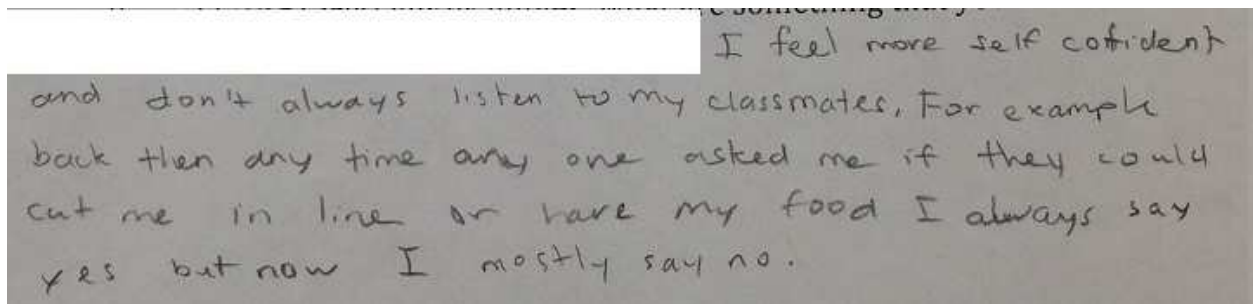 I feel more self cofident
and don't always listen to my classmates. For example
back then any time any one asked me if they could
cut me in line or have my food I always say
yes but now I mostly say no.